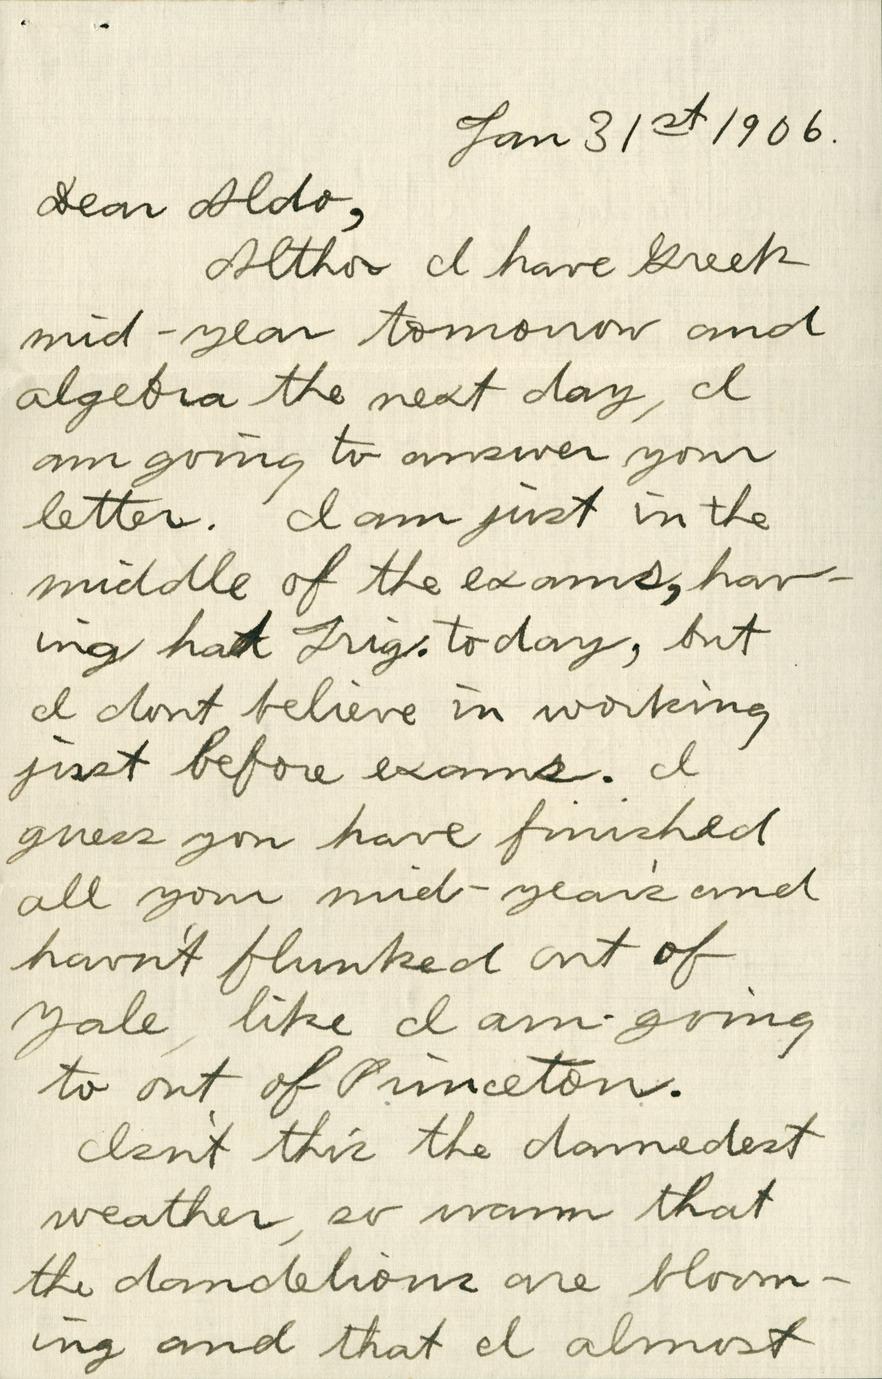 Jan 31st 1906.
Dear Aldo,
Altho I have Greek
mid-year tomorrow and
algebra the next day, I
am going to answer your
letter. I am just in the
middle of the exams, hav-
ing had Trig. today, but
I dont believe in working
just before exams. I
guess you have finished
all your mid-year's and
havn't flunked out of
Yale, like I am going
to out of Princeton.
Isn't this the damnedest
weather, so warm that
the dandelions are bloom-
ing and that I almost